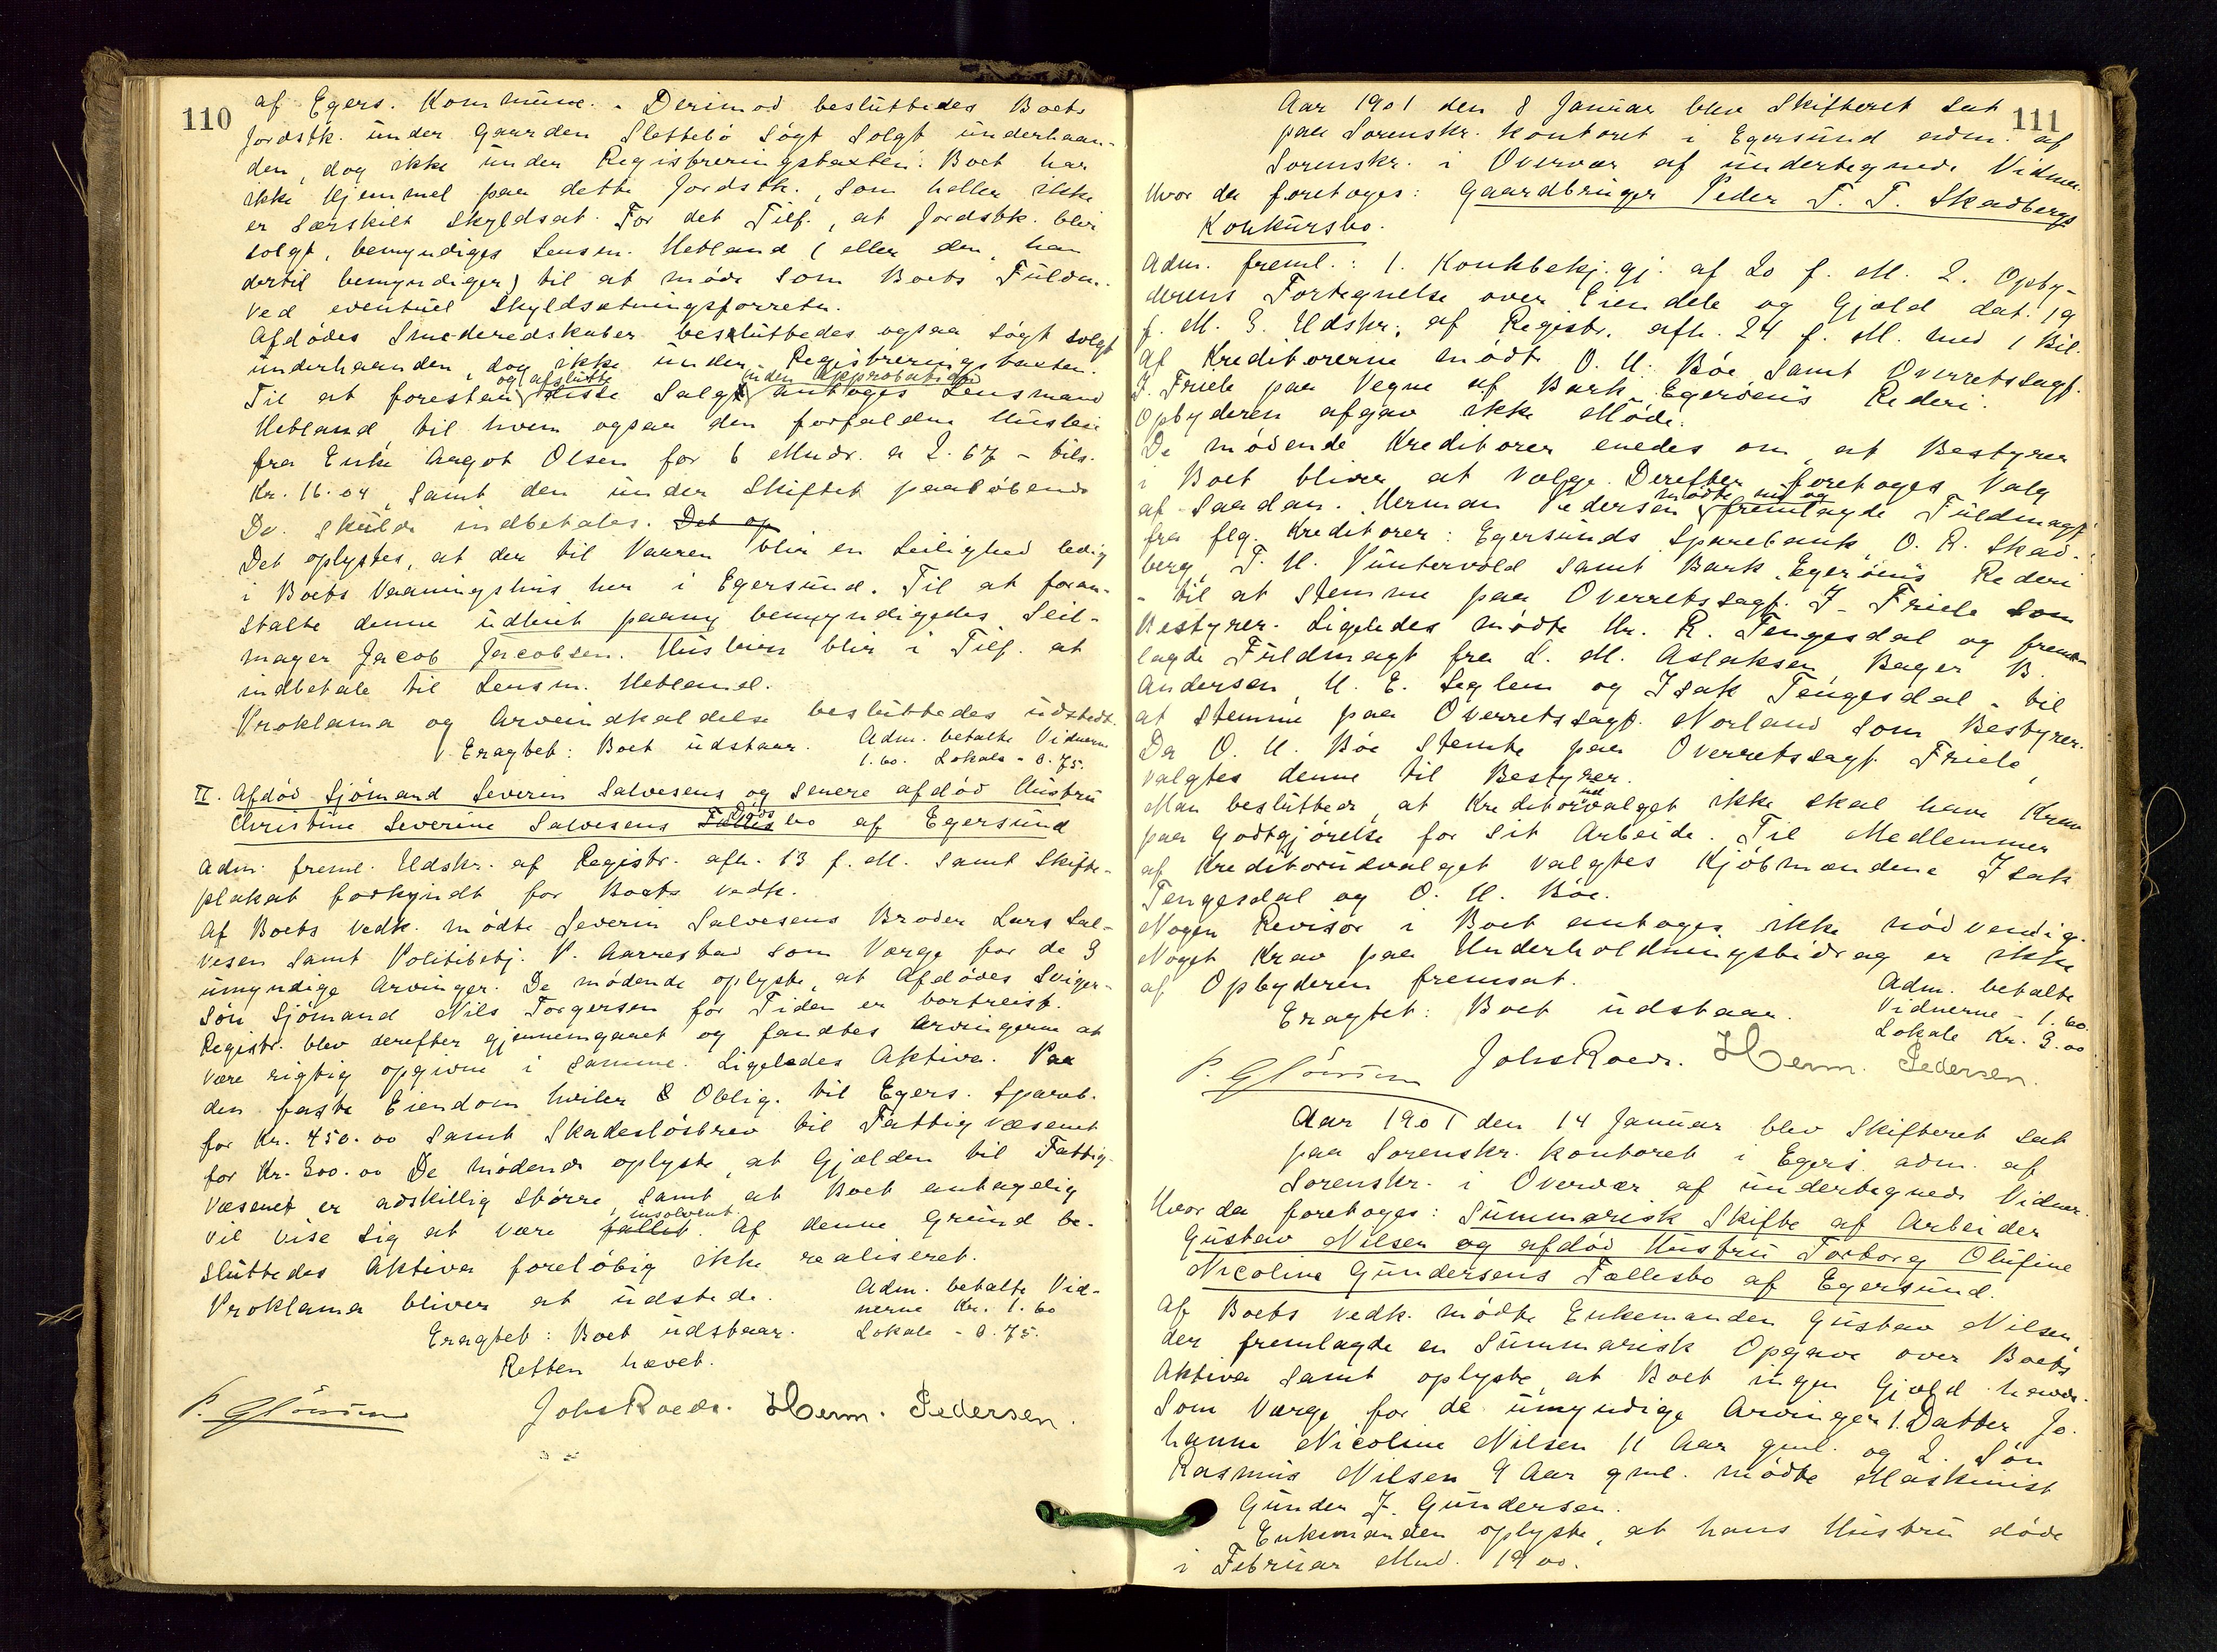 110
af Egers. Kommune. - Derimod besluttedes Boets
Jordstk. under Gaarden Slettebö sögt solgt underhaan-
den, dog ikke under Registreringstaxten. Boet har
ikke Hjemmel paa dette Jordstk., som heller ikke
er særskilt skyldsat. For det Tilf., at Jordstk. blir
solgt, bemyndiges Lensm. Hetland (eller den, han
dertil bemyndiger) til at möde som Boets Fuldm.
ved eventuel Skyldsætningsforretn.
Afdödes Smederedskaber besluttedes ogsaa sögt solgt
underhaanden, dog ikke under Registreringstaxten.
og afslutte uden Approbation
Til at forestaa disse Salg antoges Lensmand
Hetland til hvem ogsaa den forfaldne Husleie
fra Enke Aagot Olsen for 6 Mndr. a 2.67 - tils.
Kr. 16.04, samt den under Skiftet paalöbende
Do. skulde indbetales. Det op
Det oplystes, at der til Vaaren blir en Leilighed ledig
i Boets Vaaningshus her i Egersund. Til at foran-
stalte denne udleiet paany bemyndigedes Seil-
mager Jacob Jacobsen. Husleien blir i Tilf. at
indbetale til Lensm. Hetland.
Proklama og Arveindkaldelse besluttedes udstedt.
Eragtet: Boet udstaar. Adm. betalte Vidnerne
1.60. Lokale - 0.75.
II. Afdöd Sjömand Severin Salvesens og senere afdöd Hustru
Döds
Christine Severine Salvesens Fælles bo af Egersund
Adm. freml. Udskr. af Registr. afh. 13 f. M. samt Skifte-
plakat forkyndt for Boets vedk.
Af Boets vedk. mödte Severin Salvesens Broder Lars Sal-
vesen samt Politibetj. P. Aarrestad som Værge for de 3
umyndige Arvinger. De mödende oplyste, at Afdödes Sviger-
sön Sjömand Nils Torgersen for Tiden er bortreist.
Registr. blev derefter gjennemgaaet og fandtes Arvingerne at
være rigtig opgivne i samme. Ligeledes Aktiva. Paa
den faste Eiendom hviler 2 Oblig. til Egers. Spareb.
for Kr. 450.00 samt Skadeslösbrev til Fattigvæsenet
for Kr. 200.00 De mödende oplyste, at Gjælden til Fattig-
væsenet er adskillig större, samt at Boet antagelig
insolvent
vil vise sig at være fallit. Af denne Grund be-
sluttedes Aktiva foreløbig ikke realiseret.
Proklama bliver at udstede. Adm. betalte Vid-
nerne Kr. 1.60
Eragtet: Boet udstaar. Lokale - 0.75.
Retten hævet.
Johs Roede. Herm. Pedersen.
111
Aar 1901 den 8 Januar blev Skifteret sat
paa Sorenskr. kontoret i Egersund adm. af
Sorenskr. i Overvær af undertegnede Vidner.
Hvor da foretoges: Gaardbruger Peder T. T. Skadbergs
Konkursbo.
Adm. freml.: 1. Konkbekj.gj. af 20 f. M. 2. Opby-
derens Fortegnelse over Eiendele og Gjæld dat. 19
f. M. 3. Udskr. af Registr. afh. 24 f. M. med 1 Bil.
Af Kreditorerne mödte O. H. Böe samt Overretssagf.
J. Friele paa Vegne af Bark Egeröens Rederi.
Opbyderen afgav ikke Möde.
De mödende Kreditorer enedes om, at Bestyrer
i Boet bliver at vælge. Derefter foretoges Valg
mödte nu og
af saadan. Herman Pedersen fremlagde Fuldmagt
fra flg. Kreditorer: Egersunds Sparebank, O. R. Skad-
berg, T. H. Puntervold samt Bark Egeröens Rederi
- til at stemme paa Overretssagf. J. Friele som
Bestyrer. Ligeledes mödte Hr. R. Tengesdal og frem-
lagde Fuldmagt fra L. M. Aslaksen, Bager B.
Andersen, H. E. Seglem og Isak Tengesdal - til
at stemme paa Overretssagf. Norland som Bestyrer.
Da O. H. Böe stemte paa Overretssagf. Friele,
valgtes denne til Bestyrer.
ud
Man besluttede, at Kreditorvalget ikke skal have Krav
paa Godtgjörelse for sit Arbeide. Til Medlemmer
af Kreditorudvalget valgtes Kjöbmændene Isak
Tengesdal og O. H. Böe.
Nogen Revisor i Boet antoges ikke nödvendig.
Noget Krav paa Underholdningsbidrag er ikke
af Opbyderen fremsat.
Adm. betalte
Eragtet: Boet udstaar. Vidnerne - 1.60.
Lokale Kr. 3.00
Johs Roede. Herm. Pedersen.
Aar 1901 den 14 Januar blev Skifteret sat
paa Sorenskr. kontoret i Egers. adm. af
Sorenskr. i Overvær af undertegnede Vidner.
Hvor da foretoges: Summarisk Skifte af Arbeider
Gustav Nilsen og afdöd Hustru Torborg Olufine
Nicoline Gundersens Fællesbo af Egersund.
Af Boets vedk. mödte Enkemanden Gustav Nilsen,
der fremlagde en Summarisk Opgave over Boets
Aktiva samt oplyste, at Boet ingen Gjæld havde.
Som Værge for de umyndige Arvinger 1. Datter Jo-
hanne Nicoline Nilsen 11 Aar gml. og 2. Sön
Rasmus Nilsen 9 Aar gml. mödte Maskinist
Gunder J. Gundersen.
Enkemanden oplyste, at hans Hustru döde
i Februar Mnd. 1900.